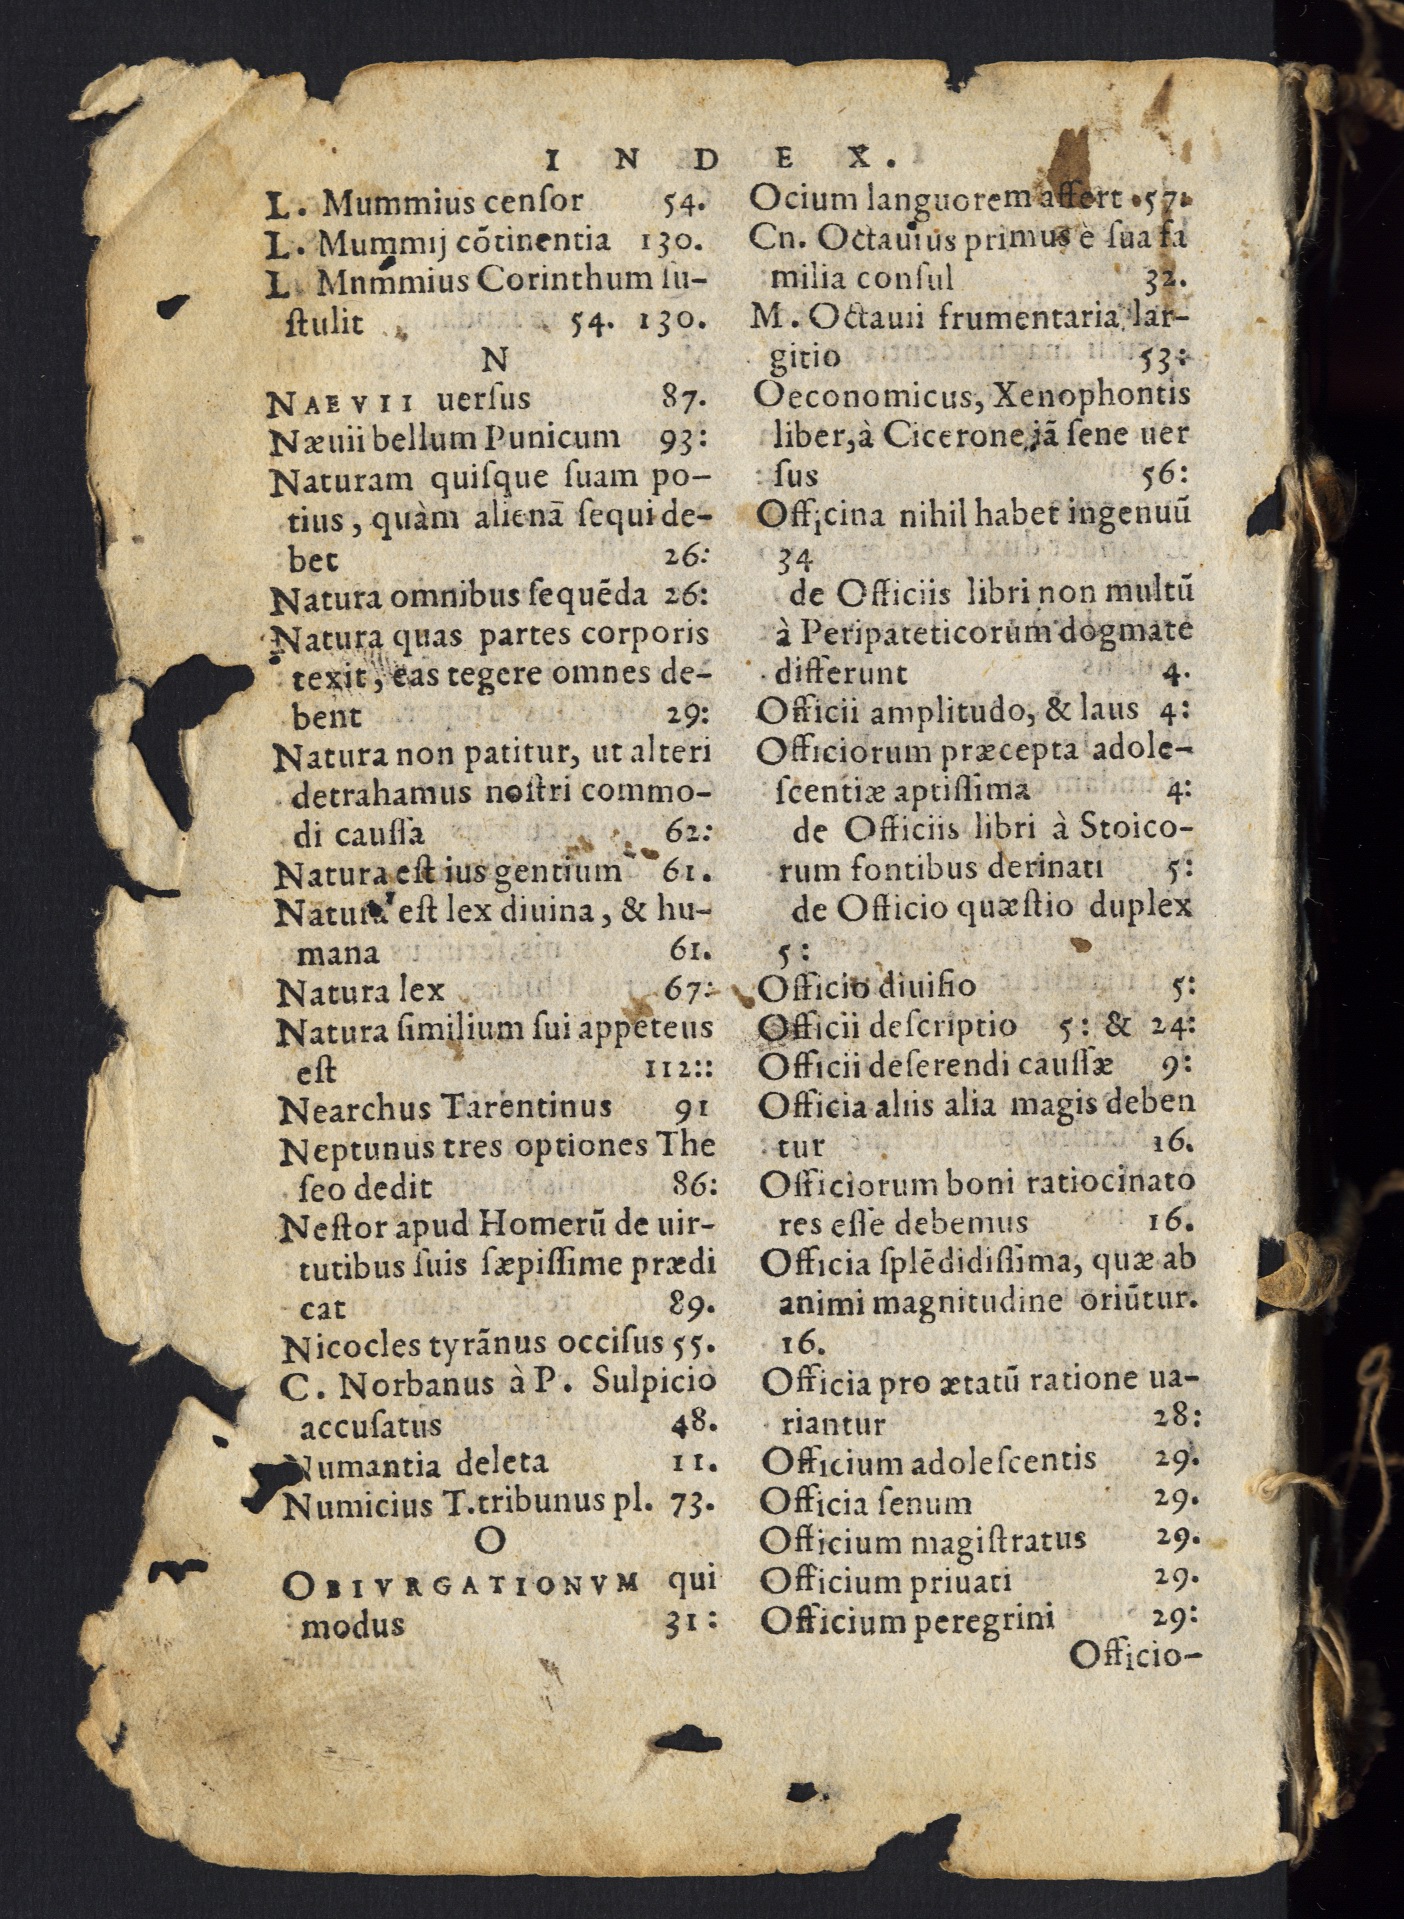 INDEX.
L. Mummius cenſor 54.
L. Mummij cõtinentia 130.
L. Mnmmius Corinthum ſu-
ſtulit 54. 130.
N
NAEVII uerſus 87.
Næuii bellum Punicum 93:
Naturam quiſque ſuam po-
tius, quàm alienã ſequi de-
bet 26:
Natura omnibus ſequẽda 26:
Natura quas partes corporis
texit, eas tegere omnes de-
bent 29:
Natura non patitur, ut alteri
detrahamus noſtri commo-
di cauſſa 62:
Natura eſt ius gentium 61.
Natura eſt lex diuina, & hu-
mana 61.
Natura lex 67:
Natura ſimilium ſui appeteus
eſt 112::
Nearchus Tarentinus 91
Neptunus tres optiones The
ſeo dedit 86:
Neſtor apud Homerũ de uir-
tutibus ſuis ſæpiſſime prædi
cat 89.
Nicocles tyrãnus occiſus 55.
C. Norbanus à P. Sulpicio
accuſatus 48.
Numantia deleta 11.
Numicius T. tribunus pl. 73.
O
OBIVRGATIONVM qui
modus 31:
Ocium languorem affert 57:
Cn. Octauius primus è ſua fa
milia conſul 32.
M. Octauii frumentaria lar-
gitio 53:
Oeconomicus, Xenophontis
liber, à Cicerone iã ſene uer
ſus 56:
Officina nihil habet ingenuũ
34
de Officiis libri non multũ
à Peripateticorum dogmate
differunt 4.
Officii amplitudo, & laus 4:
Officiorum præcepta adole-
ſcentiæ aptiſſima 4:
de Officiis libri à Stoico-
rum fontibus derinati 5:
de Officio quæſtio duplex
5:
Officio diuiſio 5:
Officii deſcriptio 5: & 24:
Officii deſerendi cauſſæ 9:
Officia aliis alia magis deben
tur 16.
Officiorum boni ratiocinato
res eſſe debemus 16.
Officia ſplẽdidiſſima, quæ ab
animi magnitudine oriũtur.
16.
Officia pro ætatũ ratione ua-
riantur 28:
Officium adoleſcentis 29.
Officia ſenum 29.
Officium magiſtratus 29.
Officium priuati 29.
Officium peregrini 29:
Officio-